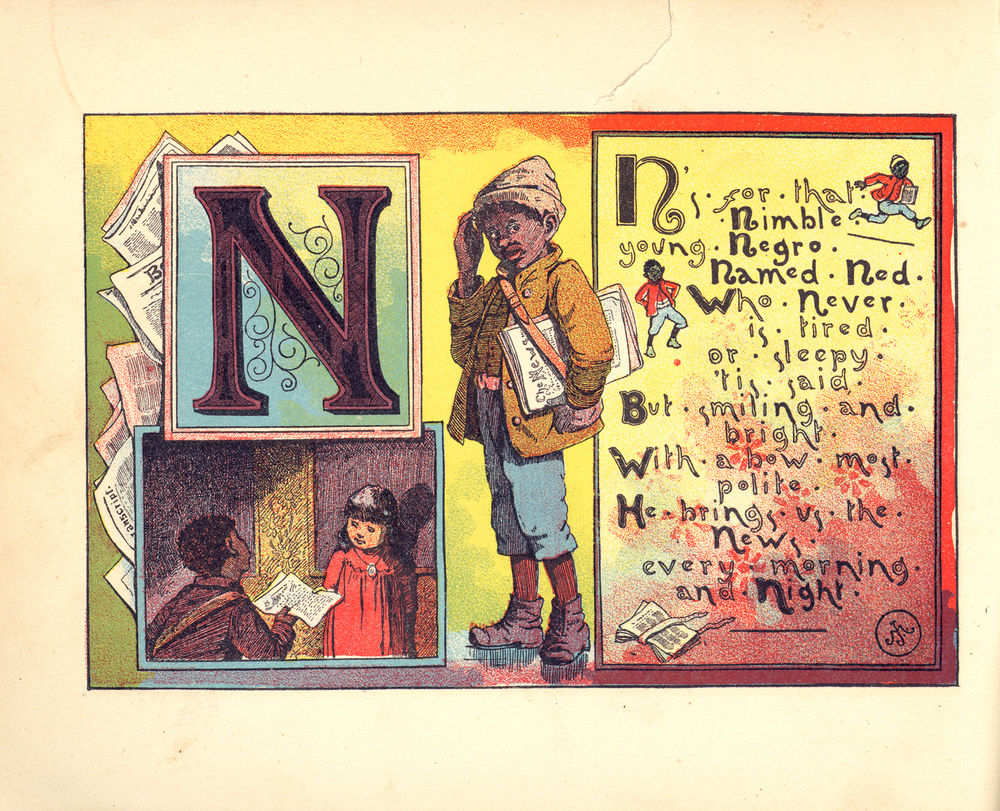 N
The News
Transcript
N's · for · that ·
Nimble ·
young · Negro ·
Named · Ned ·
Who · Never ·
is · tired ·
or · sleepy ·
'tis · said ·
But · smiling · and ·
bright ·
With · a bow · most ·
polite ·
He · brings · us · the ·
News ·
every · morning ·
and · Night ·